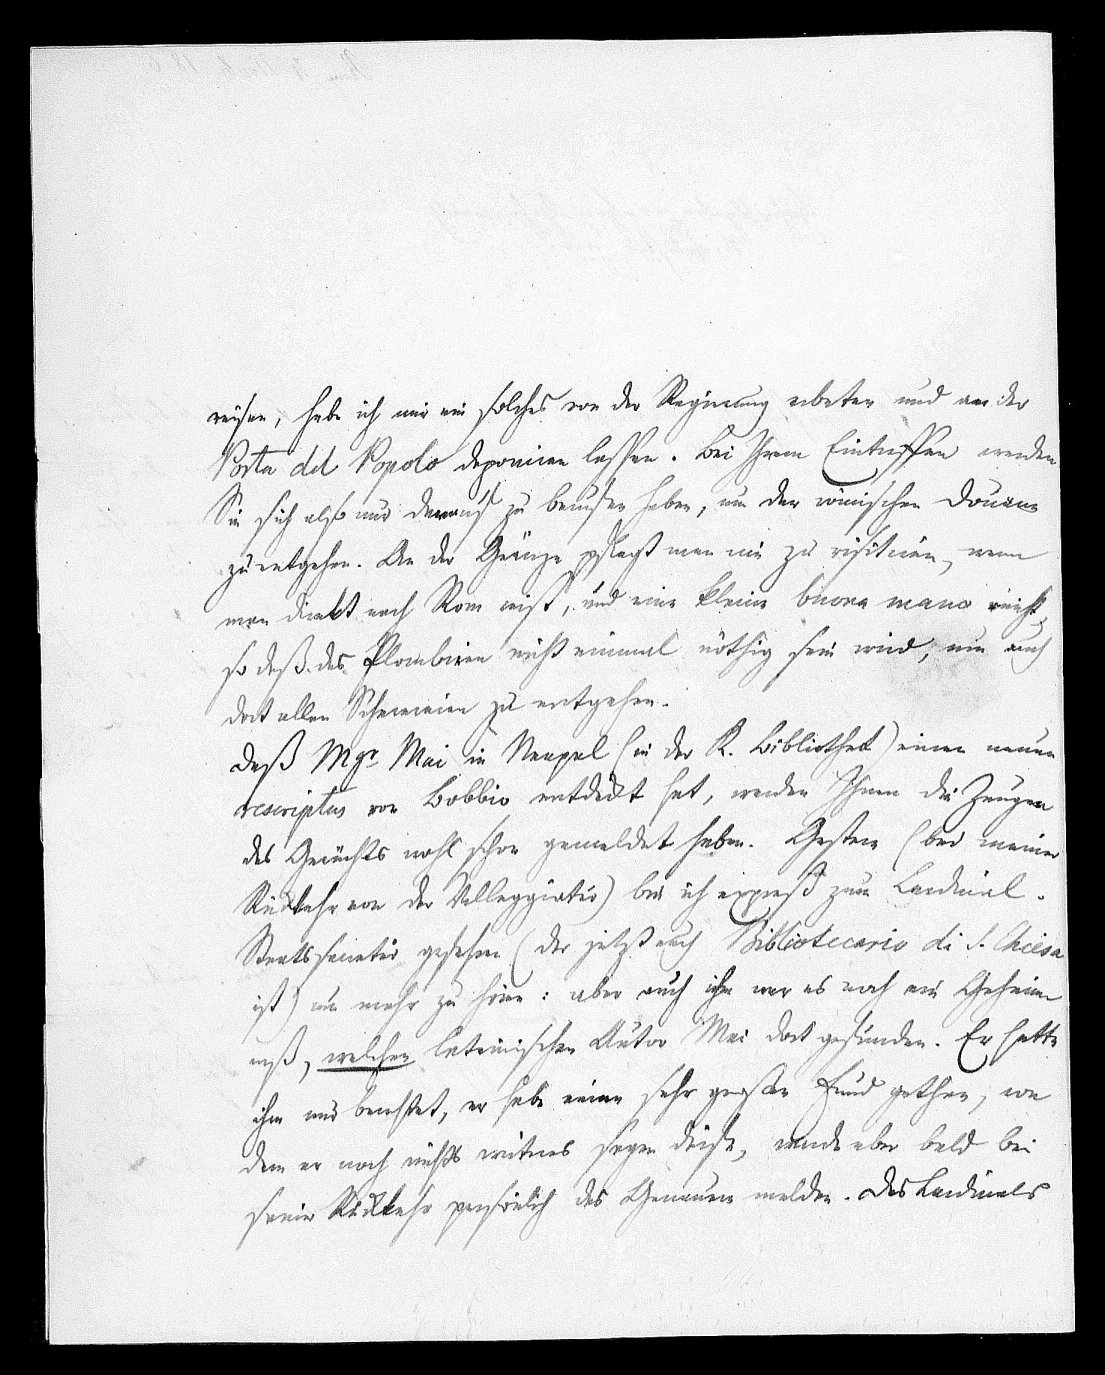 reisen, habe ich mir ein solches von der Regierung erbeten und an der
Porta del Popolo deponiren lassen. Bei Ihrem Eintreffen werden
Sie sich also nur darauf zu berufen haben, um der römischen Douane
zu entgehen. An der Gränze pflegt man nie zu visitiren, wenn
man direkt nach Rom reist, und eine kleine buona mano reicht,
so daß das Plombiren nicht einmal nöthig sein wird, um auch
dort allen Scherereien zu entgehen.
Daß Mgr. Mai in Neapel (in der K. Bibliothek) einen neuen
rescriptus von Bobbio entdeckt hat, werden Ihnen die Zungen
des Gerüchts wohl schon gemeldet haben. Gestern (bei meiner
Rückkehr von der Villeggiatur) bin ich expreß zum Cardinal-
Staatssecretär gefahren (der jetzt auch Bibliotecario di S. Chiesa
ist) um mehr zu hören: aber auch ihm war es noch ein Geheim-
niß, welchen lateinischen Autor Mai dort gefunden. Er hatte
ihm nur berichtet, er habe einen sehr großen Fund gethan, von
dem er noch nichts weiteres sagen dürfe, werde aber bald bei
seiner Rückkehr persönlich das Genauere melden. Des Cardinals